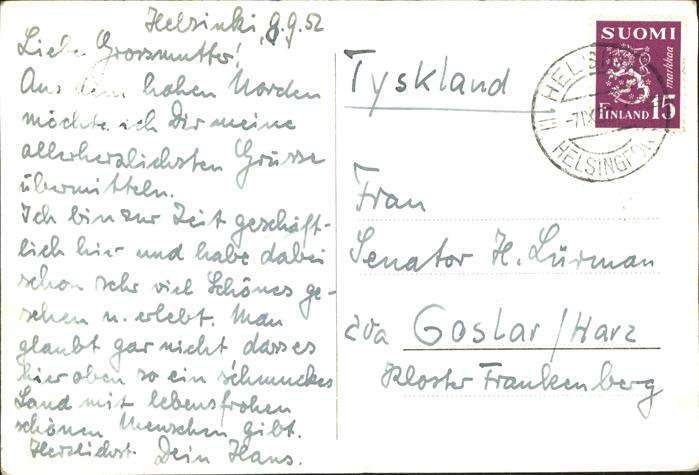 Helsinki, 8.9.52
Liebe Grossmutter!
Aus dem hohen Norden
möchte ich Dir meine
allerherzlichsten Grüsse
übermitteln.
Ich bin zur Zeit geschäft-
lich hier und habe dabei
schon sehr viel Schönes ge-
sehen u. erlebt. Man
glaubt gar nicht dass es
hier oben so ein schmuckes
Land mit lebensfrohen
schönen Menschen gibt.
Herzlichst Dein Hans.
SUOMI
markkaa
FINLAND 15
HELSIN
HELSINGFO
Tyskland
Frau
Senator H. Lürman
Goslar/Harz
Kloster Frankenberg